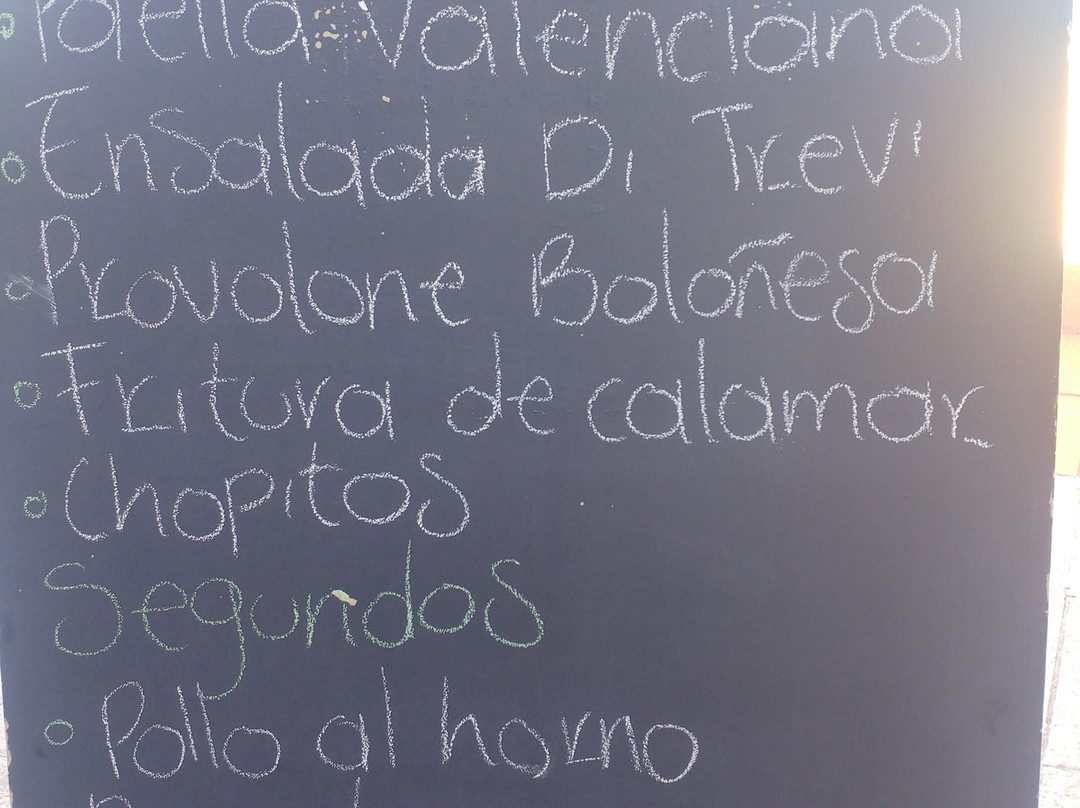 Paella Valenciana
Ensalada Di Trevi
Provolone Boloñesa
Fritura de calamar
Chopitos
Segundos
Pollo al horno